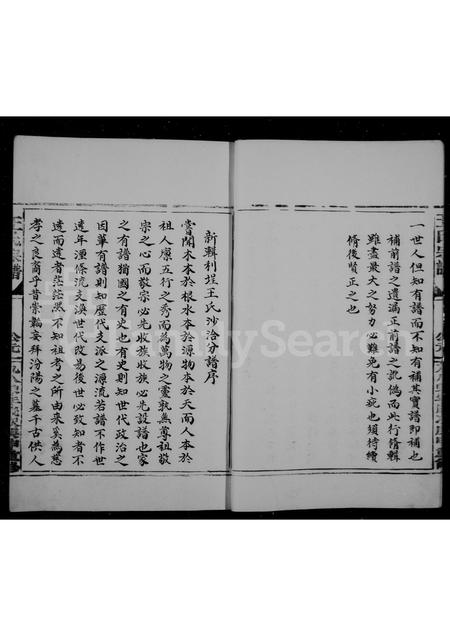 一世人但知有譜而不知有補其實譜即補也
補前譜之遺漏正前譜之訛偽而此行脩輯
雖盡最大之努力必難免有小疵也須待續
脩後賢正之也
新輯利埕王氏沙洛分譜序
嘗聞木本於根水本於源物本于天而人本於
祖人原五行之秀而為萬物之靈孰無尊祖敬
宗之心而敬宗必先收族收族必先設譜也家
之有譜猶國之有史也有史則知世代政治之
因革有譜則知歷代支派之源流若譜不作世
遠年湮條流支渙世代改易後世必致知者不
遺而遺者茫茫然不知祖考之所由來矣為慈
孝之良裔乎昔崇韜妄拜汾陽之墓千古供人
王氏宗譜
FamilySearch